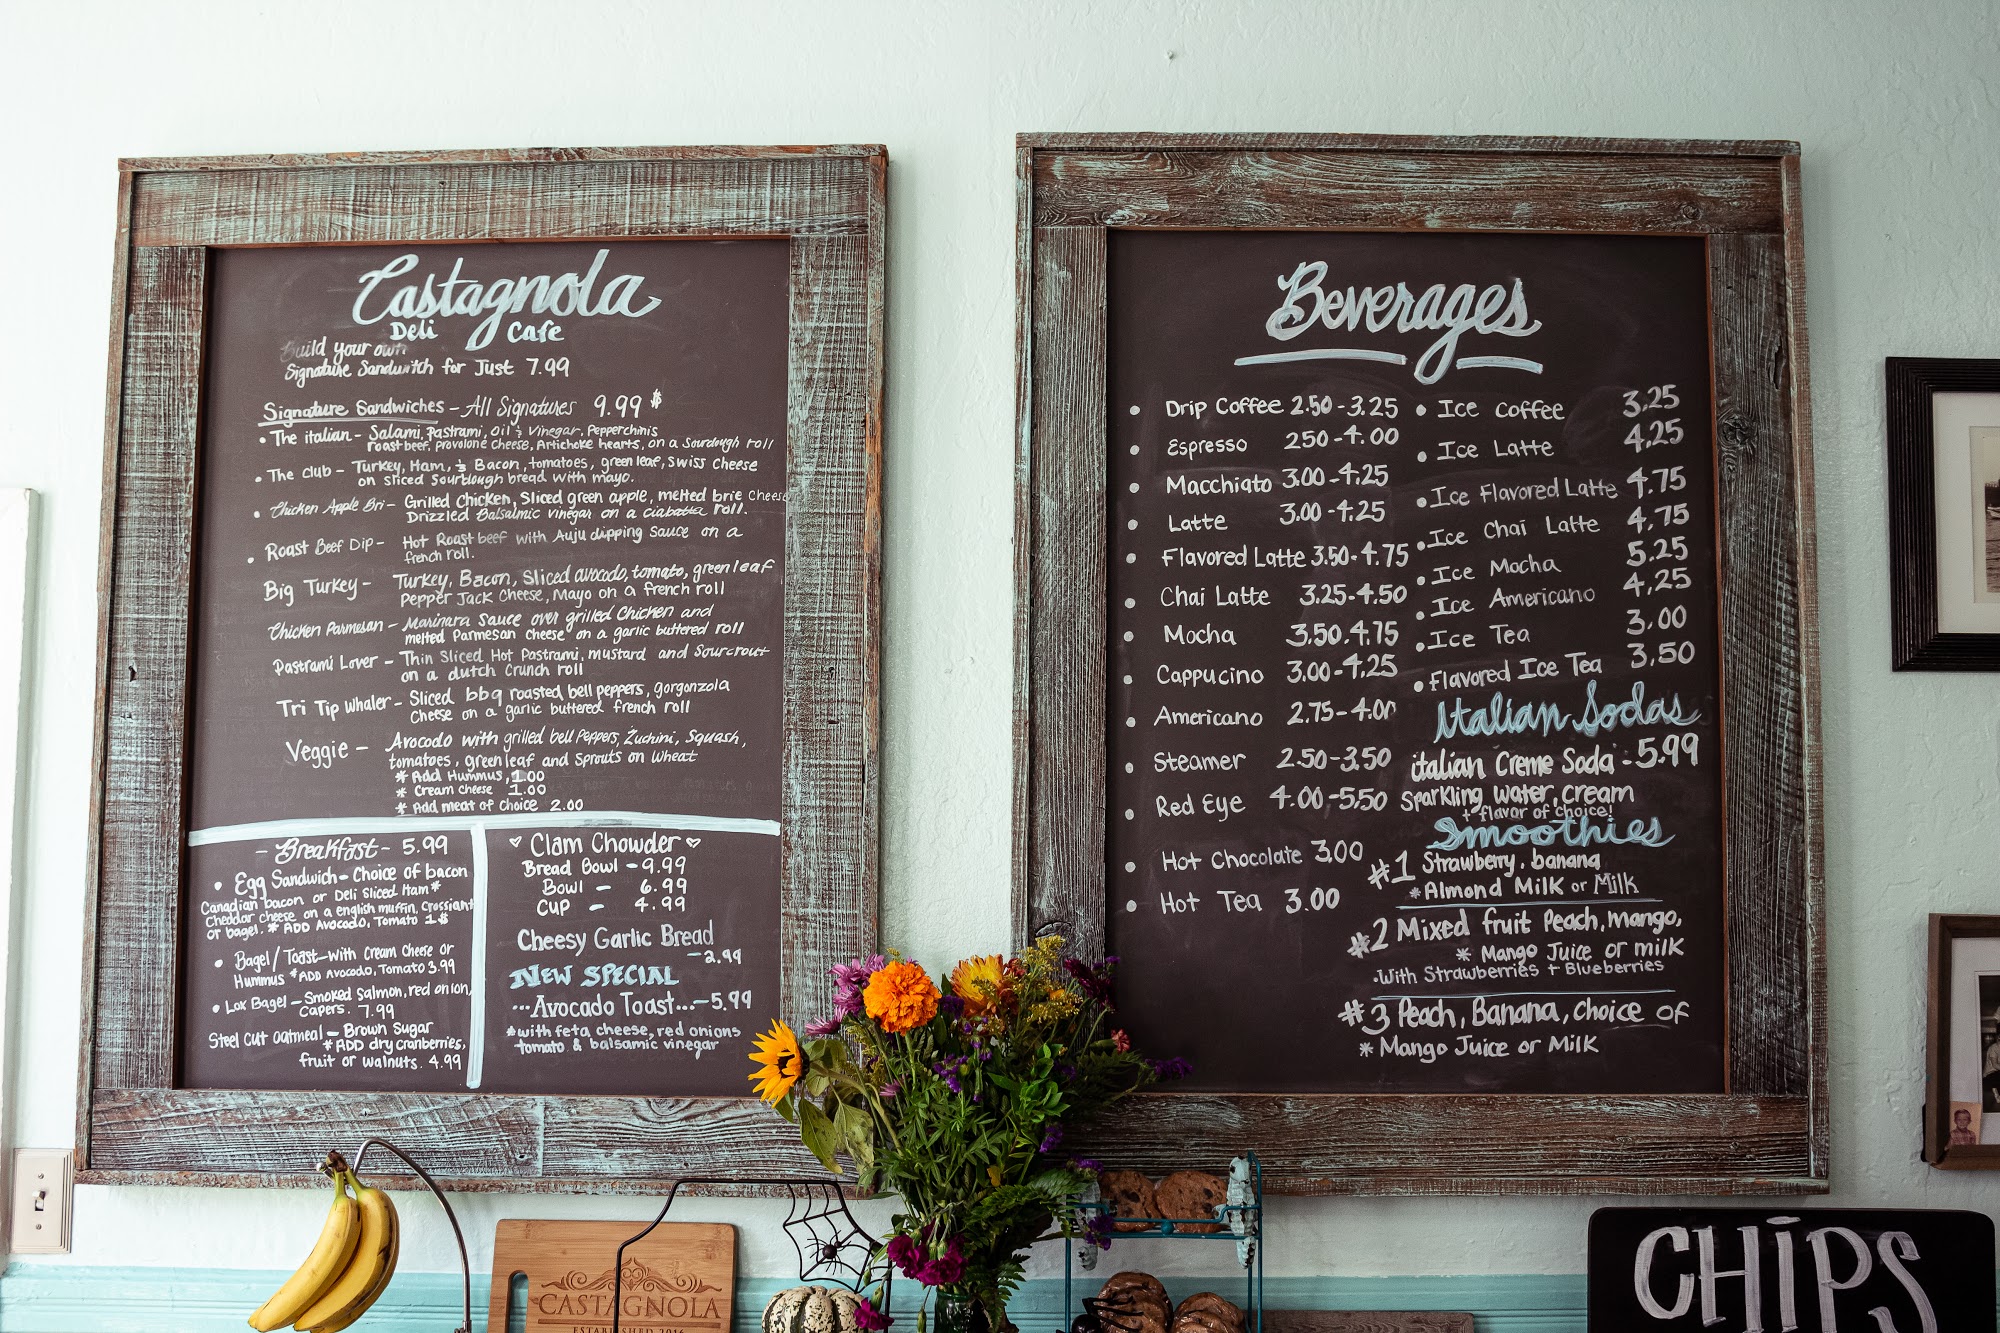 Castagnola
Deli Cafe
Build your own
Signature Sandwitch for Just 7.99
Signature Sandwiches - All Signatures 9.99 $
• The italian - Salami, Pastrami, Oil & Vinegar, Pepperchinis
roast beef, provolone cheese, Artichoke hearts, on a Sourdough roll
• The Club - Turkey, Ham, & Bacon, tomatoes, green leaf, Swiss cheese
on sliced sourdough bread with mayo.
• Chicken Apple Bri - Grilled Chicken, Sliced green apple, melted brie cheese
Drizzled Balsalmic vinegar on a ciabatta roll.
• Roast Beef Dip - Hot Roast beef with Auju dipping sauce on a
french roll.
Big Turkey - Turkey, Bacon, Sliced avocado, tomato, green leaf
Pepper Jack Cheese, Mayo on a french roll
Chicken Parmesan - Marinara sauce over grilled chicken and
melted Parmesan cheese on a garlic buttered roll
Pastrami Lover - Thin Sliced Hot Pastrami, mustard and Sourcrout
on a dutch crunch roll
Tri Tip Whaler - Sliced bbq roasted bell peppers, gorgonzola
Cheese on a garlic buttered french roll
Veggie - Avocodo with grilled bell Peppers, Zuchini, Squash,
tomatoes, green leaf and Sprouts on Wheat
* Add Hummus, 1.00
* Cream cheese 1.00
* Add meat of choice 2.00
- Breakfast - 5.99
• Egg Sandwich - Choice of bacon
Canadian bacon or Deli Sliced Ham *
Cheddar cheese on a english muffin, Crossiant
or bagel. * ADD Avocado, Tomato 1$
• Bagel/Toast - with Cream Cheese or
Hummus * ADD Avocado, Tomato 3.99
• Lox Bagel - Smoked Salmon, red onion,
Capers. 7.99
Steel cut oatmeal - Brown Sugar
* ADD dry cranberries,
fruit or walnuts. 4.99
♡ Clam Chowder ♡
Bread Bowl - 9.99
Bowl - 6.99
Cup - 4.99
Cheesy Garlic Bread
- 2.99
NEW SPECIAL
...Avocado Toast...- 5.99
* with feta cheese, red onions
tomato & balsamic vinegar
Beverages
• Drip Coffee 2.50 - 3.25
• Espresso 250 - 4.00
• Macchiato 3.00 - 4.25
• Latte 3.00 - 4.25
• Flavored Latte 3.50 - 4.75
• Chai Latte 3.25 - 4.50
• Mocha 3.50.4.75
• Cappucino 3.00 - 4.25
• Americano 2.75 - 4.00
• Steamer 2.50 - 3.50
• Red Eye 4.00 - 5.50
• Hot Chocolate 3.00
• Hot Tea 3.00
• Ice Coffee 3.25
• Ice Latte 4.25
• Ice Flavored Latte 4.75
• Ice Chai Latte 4.75
• Ice Mocha 5.25
• Ice Americano 4.25
• Ice Tea 3.00
• Flavored Ice Tea 3.50
Italian Sodas
italian Creme Soda - 5.99
Sparkling water, cream
+ flavor of choice!
Smoothies
#1 Strawberry, banana
* Almond Milk or Milk
#2 Mixed fruit Peach, mango,
* Mango Juice or milk
- With Strawberries + Blueberries
#3 Peach, Banana, choice of
* Mango Juice or Milk
CASTAGNOLA
ESTABLISHED 2016
CHIPS